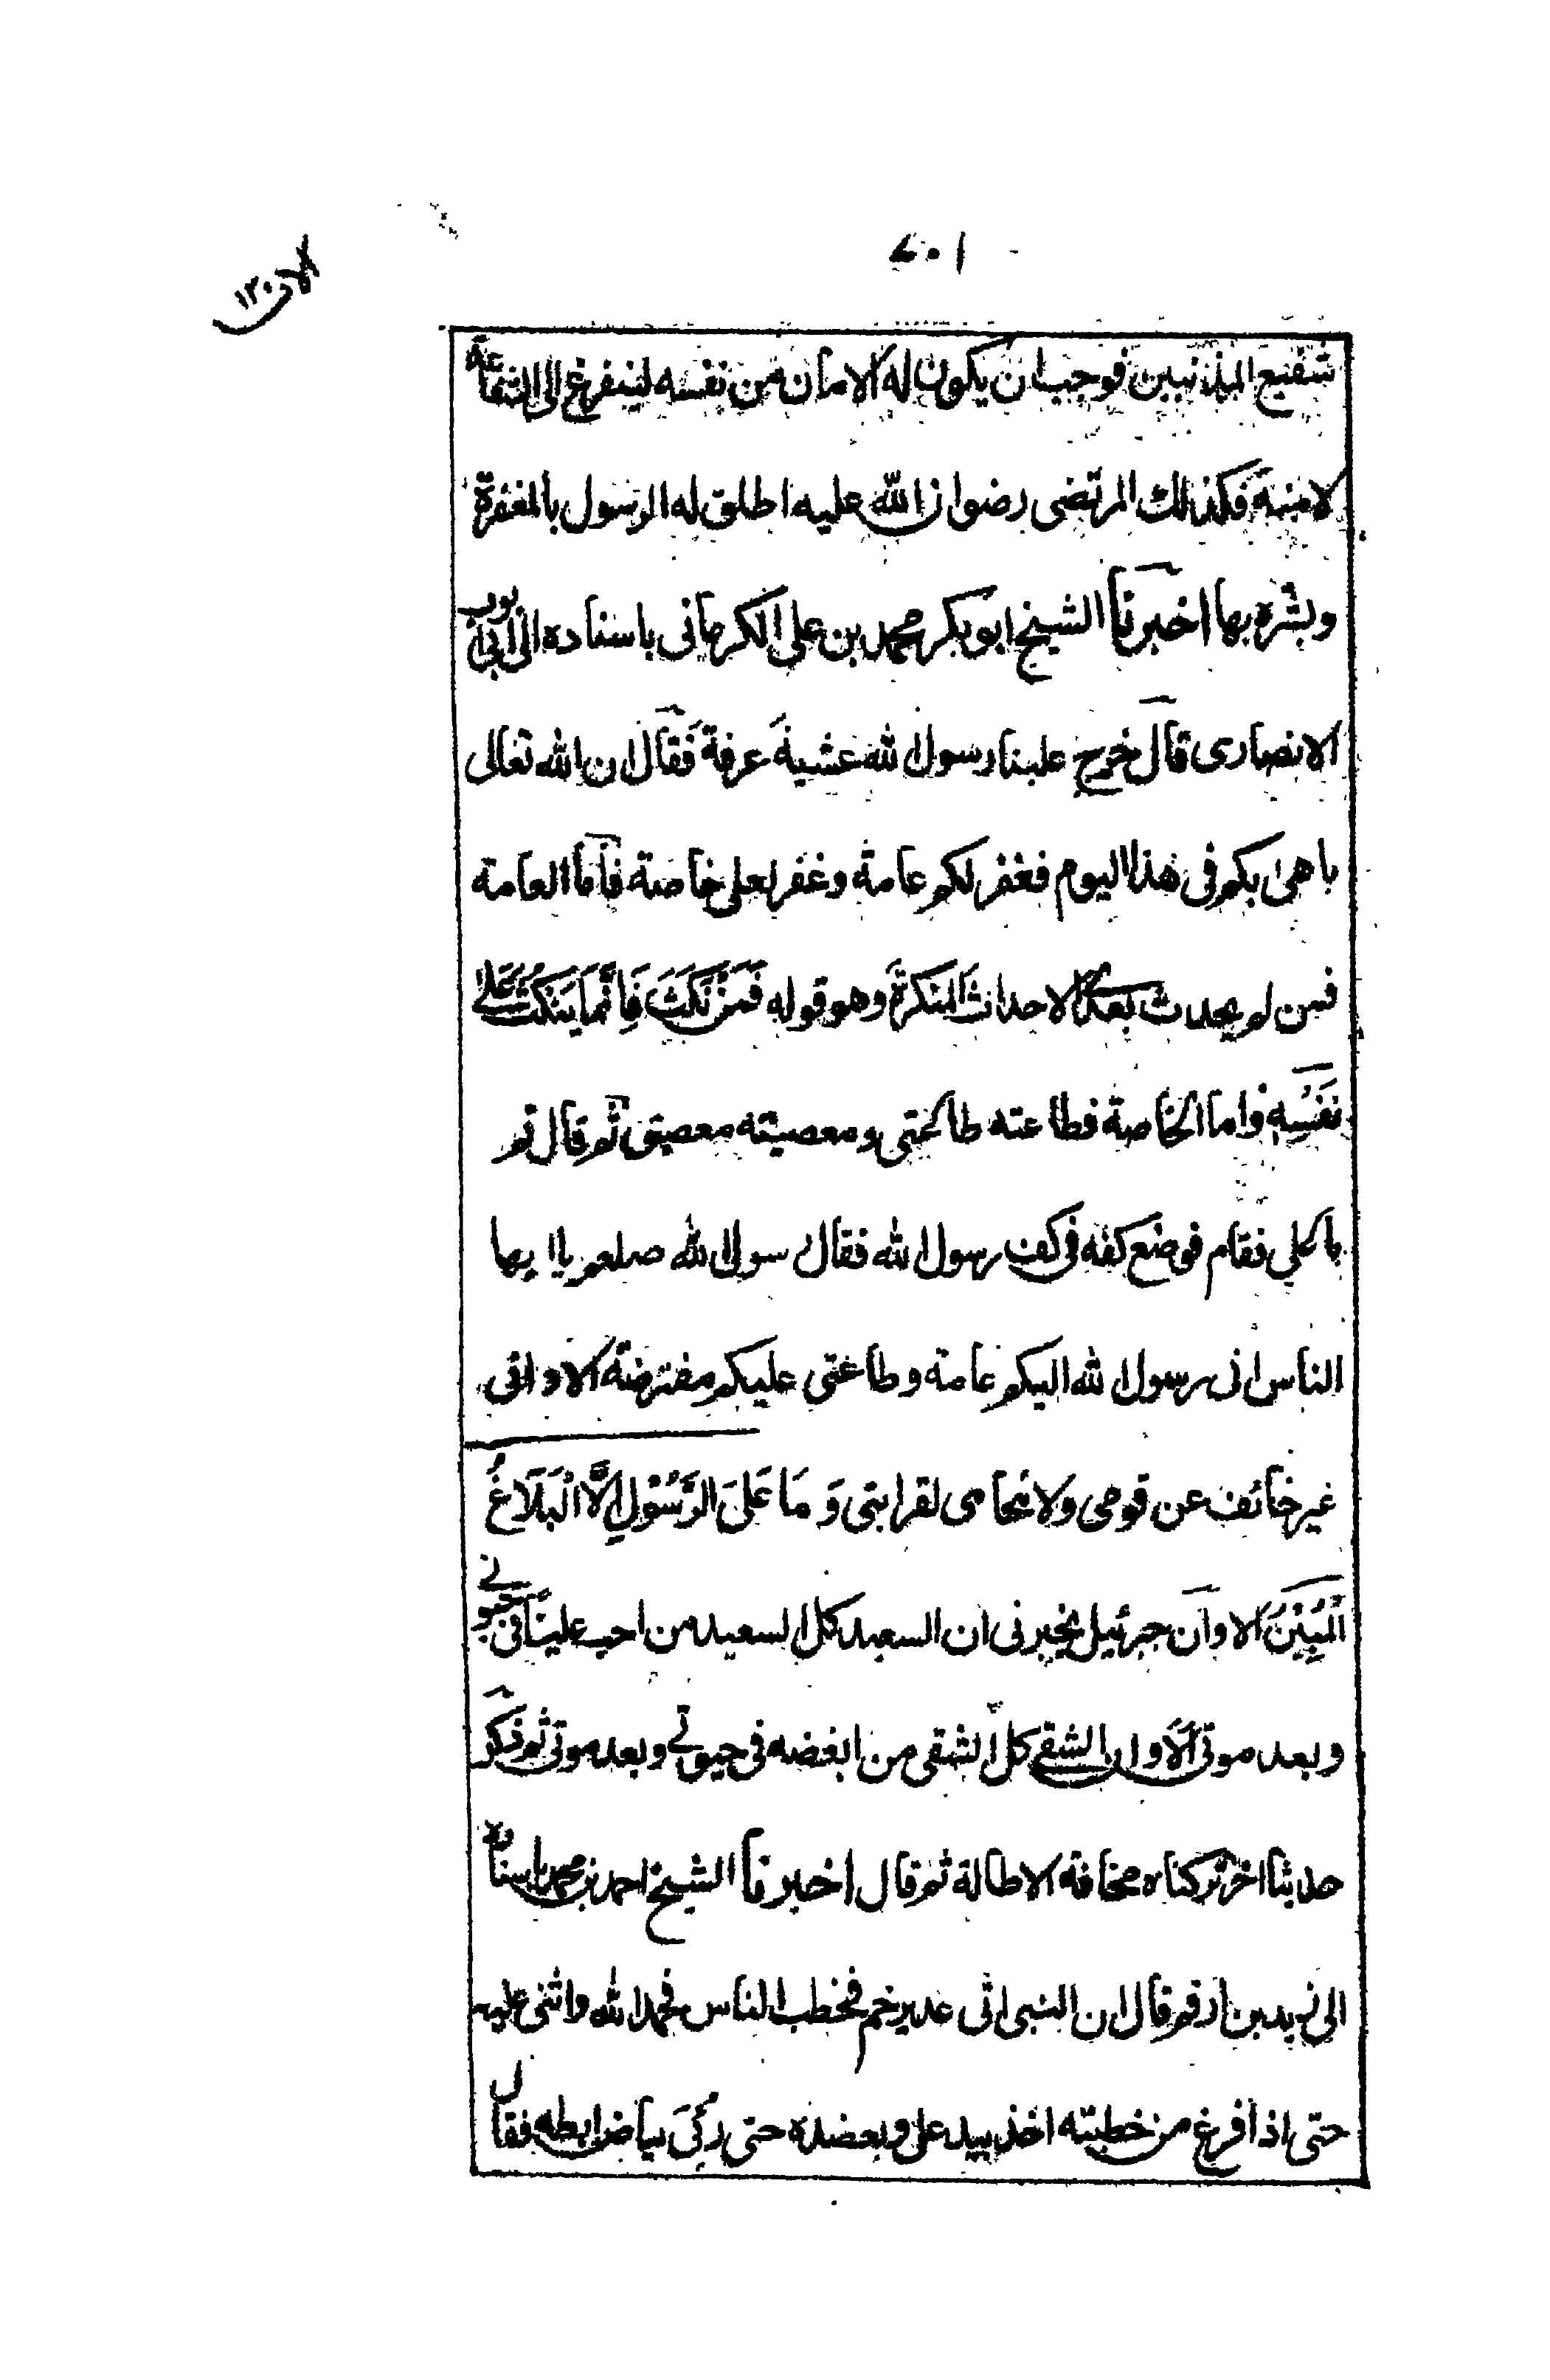 شفيع المذنبين فوجب ان يكون له الامان من نفسه ليتفرغ الى الشفاعة
لامته فكذلك المرتضى رضوان الله عليه اطلق له الرسول بالمغفرة
وبشره بها اخبرنا الشيخ ابو بكر محمد بن على الكرمانى باسناده الى ابى ايوب
الانصارى قال خرج علينا رسول الله عشية عرفة فقال ان الله تعالى
باهى بكم فى هذا اليوم فغفر لكم عامة وغفر لعلى خاصة فاما العامة
فمن لم يحدث بعدى الاحداث المنكرة وهو قوله فَمَنْ نَكَثَ فَاِنَّمَا يَنْكُثُ عَلٰى
نَفْسِهٖ واما الخاصة فطاعته طاعتى ومعصيته معصيتى ثم قال قم
يا على فقام فوضع كفه فى كف رسول الله فقال رسول الله صلعم يا ايها
الناس انى رسول الله اليكم عامة وطاعتى عليكم مفترضة الا وانى
غير خائف عن قومى ولا محامى لقرابتى وَمَا عَلَى الرَّسُوْلِ اِلَّا الْبَلَاغُ
الْمُبِيْنُ الا وان جبرئيل يخبرنى ان السعيد كل السعيد من احب عليّا فى حيوتى
وبعد موتى الا وان الشقى كل الشقى من ابغضه فى حيوتى وبعد موتى ثم ذكر
حديثا اخر تركناه مخافة الاطالة ثم قال اخبرنا الشيخ احمد بن محمد باسناده
الى زيد بن ارقم قال ان النبى اتى غدير خم فخطب الناس فحمد الله واثنى عليه
حتى اذا فرغ من خطبته اخذ بيد على وبعضده حتى رئى بياض ابطه فقال